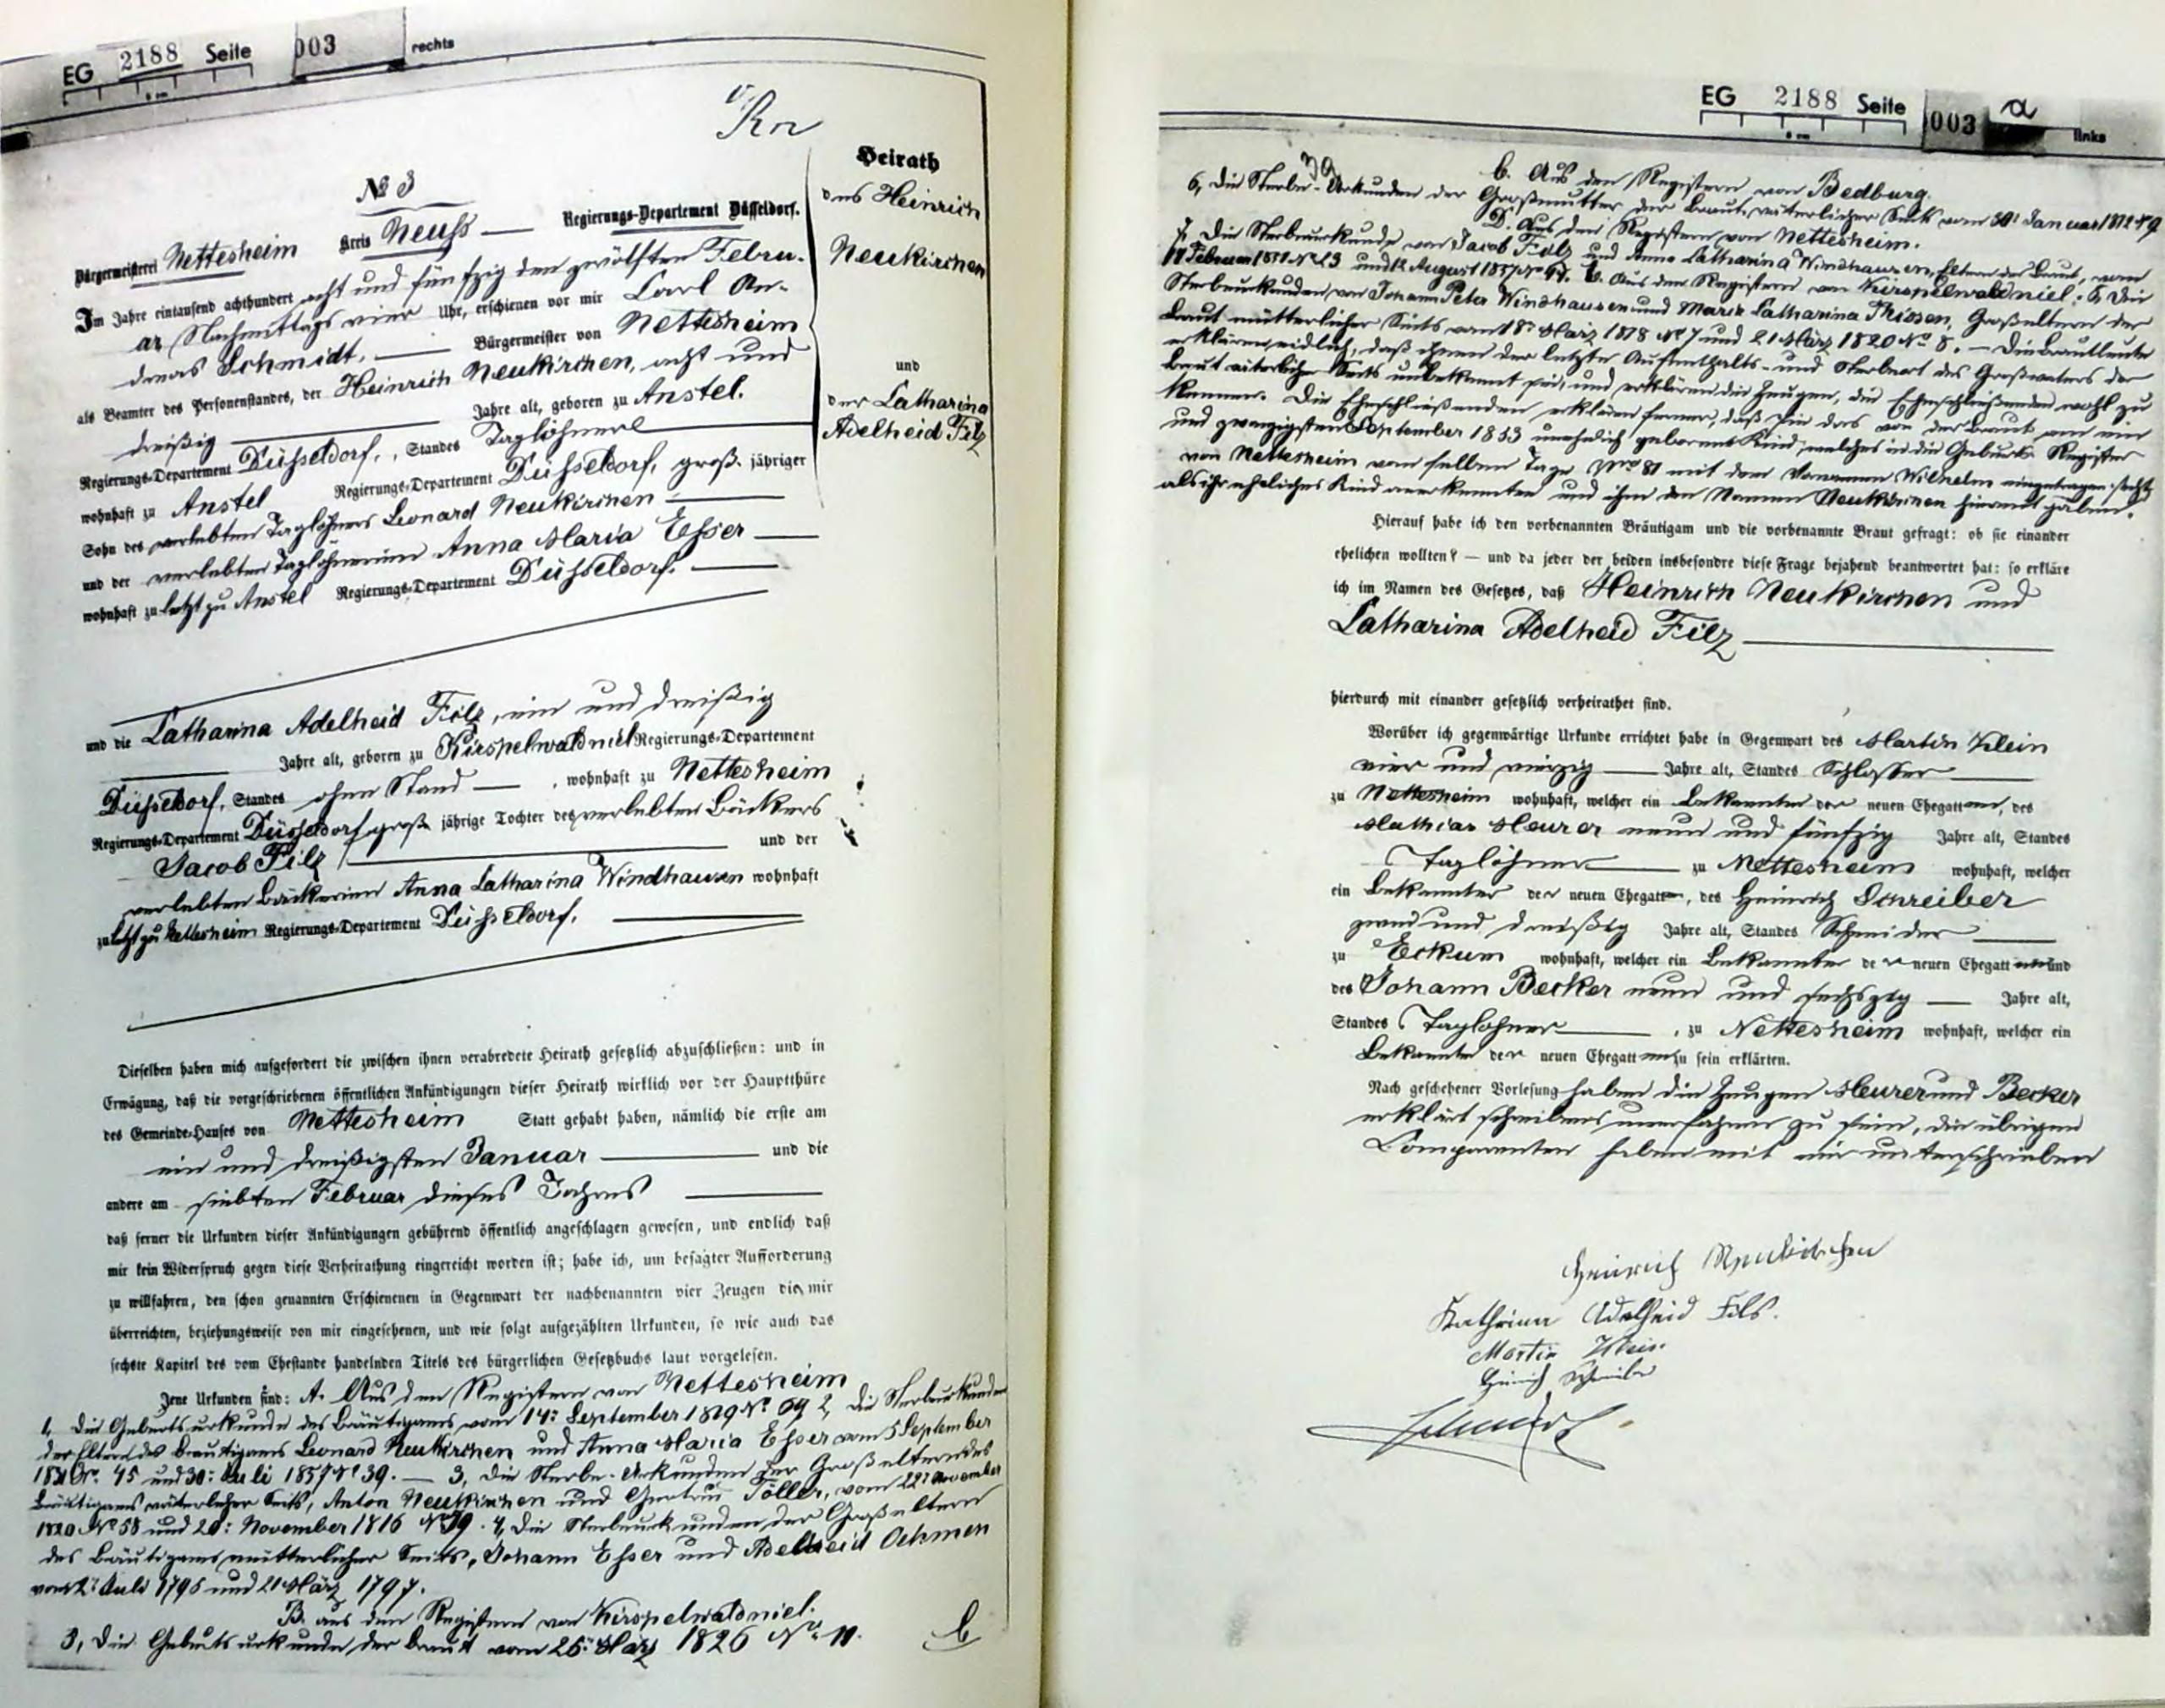 EG 2188 Seite 003 rechts
№ 3
Heirath
des Heinrich
Neukirchen
und
der Catharina
Adelheid Filz
Bürgermeisterei Nettesheim Kreis Neuss — Regierungs-Departement Düsseldorf.
Im Jahre eintausend achthundert acht und fünfzig den zwölften Febru-
ar Nachmittags vier Uhr, erschienen vor mir Carl An-
dreas Schmidt, — Bürgermeister von Nettesheim
als Beamter des Personenstandes, der Heinrich Neukirchen, acht und
dreißig — Jahre alt, geboren zu Anstel.
Regierungs-Departement Düsseldorf, , Standes Taglöhner
wohnhaft zu Anstel Regierungs-Departement Düsseldorf, groß jähriger
Sohn des verlebten Taglöhners Leonard Neukirchen —
und der verlebten Taglöhnerinn Anna Maria Esser —
wohnhaft zuletzt zu Anstel Regierungs-Departement Düsseldorf. —
und die Catharina Adelheid Filz, ein und dreißig
— Jahre alt, geboren zu Kirspelwaldniel Regierungs-Departement
Düsseldorf, Standes ohne Stand — , wohnhaft zu Nettesheim
Regierungs-Departement Düsseldorf groß jährige Tochter des verlebten Bäckers
Jacob Filz — und der
verlebten Bäckerinn Anna Catharina Windhausen wohnhaft
zuletzt zu Nettesheim Regierungs-Departement Düsseldorf. —
Dieselben haben mich aufgefordert die zwischen ihnen verabredete Heirath gesetzlich abzuschließen: und in
Erwägung, daß die vorgeschriebenen öffentlichen Ankündigungen dieser Heirath wirklich vor der Hauptthüre
des Gemeinde-Hauses von Nettesheim Statt gehabt haben, nämlich die erste am
ein und dreißigsten Januar — und die
andere am siebten Februar dieses Jahres —
daß ferner die Urkunden dieser Ankündigungen gebührend öffentlich angeschlagen gewesen, und endlich daß
mir kein Widerspruch gegen diese Verheirathung eingereicht worden ist; habe ich, um besagter Aufforderung
zu willfahren, den schon genannten Erschienenen in Gegenwart der nachbenannten vier Zeugen die mir
überreichten, beziehungsweise von mir eingesehenen, und wie folgt aufgezählten Urkunden, so wie auch das
sechste Kapitel des vom Ehestande handelnden Titels des bürgerlichen Gesetzbuchs laut vorgelesen.
Jene Urkunden sind: A. Aus den Registern von Nettesheim
1, Die Geburtsurkunde des Bräutigams vom 14: September 1819 № 2, Die Sterbeurkunden
der Eltern des Bräutigams Leonard Neukirchen und Anna Maria Esser vom 5 September
№ 45 und 30: Juli 1857 № 39. — 3, Die Sterbe-Urkunden der Großeltern des
Bräutigams väterlicher Seits, Anton Neukirchen und Gertrud Töller, vom 22: November
1820 № 58 und 20: November 1816 № 79. 4, Die Sterbeurkunden der Großeltern
des Bräutigams mütterlicher Seits, Johann Esser und Adelheid Oehmen
vom 2: Juli 1795 und 21 März 1797.
B. aus den Registern von Kirspelwaldniel.
3, Die Geburtsurkunde der Braut vom 26: März 1826 № 11.
EG 2188 Seite 003 a links
C. Aus den Registern von Bedburg.
6, Die Sterbe-Urkunden der Großmutter der Braut väterlicher Seits vom 30: Januar 1812 № 9
D. Aus den Registern von Nettesheim.
7, Die Sterbeurkunde von Jacob Filz und Anna Catharina Windhausen, Eltern der Braut, vom
Februar № 13 und 12 August 1857 E. Aus den Registern von Kirspelwaldniel: 8, Die
Sterbeurkunden von Johann Peter Windhausen und Maria Catharina Thissen, Großeltern der
Braut mütterlicher Seits vom 18: März 1818 № 7 und 21 März 1820 № 8. — Die Brautleute
erklären eidlich, daß ihnen der letzte Aufenthalts- und Sterbeort des Großvaters der
Braut väterlicher Seits unbekannt sei, und erklären die Zeugen, die Eheschließenden wohl zu
kennen. Die Eheschließenden erklären ferner, daß sie das von der Braut am ein
und zwanzigsten September 1853 unehelich geborene Kind, welches in die Geburts-Register
von Nettesheim vom selben Tage № 81 mit dem Vornamen Wilhelm eingetragen steht
als ihr eheliches Kind anerkennten und ihm den Namen Neukirchen hiermit gäben.
Hierauf habe ich den vorbenannten Bräutigam und die vorbenannte Braut gefragt: ob sie einander
ehelichen wollten? — und da jeder der beiden insbesondre diese Frage bejahend beantwortet hat: so erkläre
ich im Namen des Gesetzes, daß Heinrich Neukirchen und
Catharina Adelheid Filz —
hierdurch mit einander gesetzlich verheirathet sind.
Worüber ich gegenwärtige Urkunde errichtet habe in Gegenwart des Martin Klein
vier und vierzig — Jahre alt, Standes Schlosser —
zu Nettesheim wohnhaft, welcher ein Bekannter der neuen Ehegatten, des
Mathias Meurer neun und fünfzig Jahre alt, Standes
Taglöhner — zu Nettesheim wohnhaft, welcher
ein Bekannter der neuen Ehegatten, des Heinrich Schreiber
zwei und dreißig Jahre alt, Standes Schneider —
zu Eckum wohnhaft, welcher ein Bekannter der neuen Ehegatten und
des Johann Becker neun und sechszig — Jahre alt,
Standes Taglöhner — , zu Nettesheim wohnhaft, welcher ein
Bekannter der neuen Ehegatten zu sein erklärten.
Nach geschehener Vorlesung haben die Zeugen Meurer und Becker
erklärt schreibens unerfahren zu sein, die übrigen
Comparenten haben mit mir unterschrieben
Heinrich Neukirchen
Kathrina Adelheid Fils.
Martin Klein
Heinrich Schreiber
Schmidt